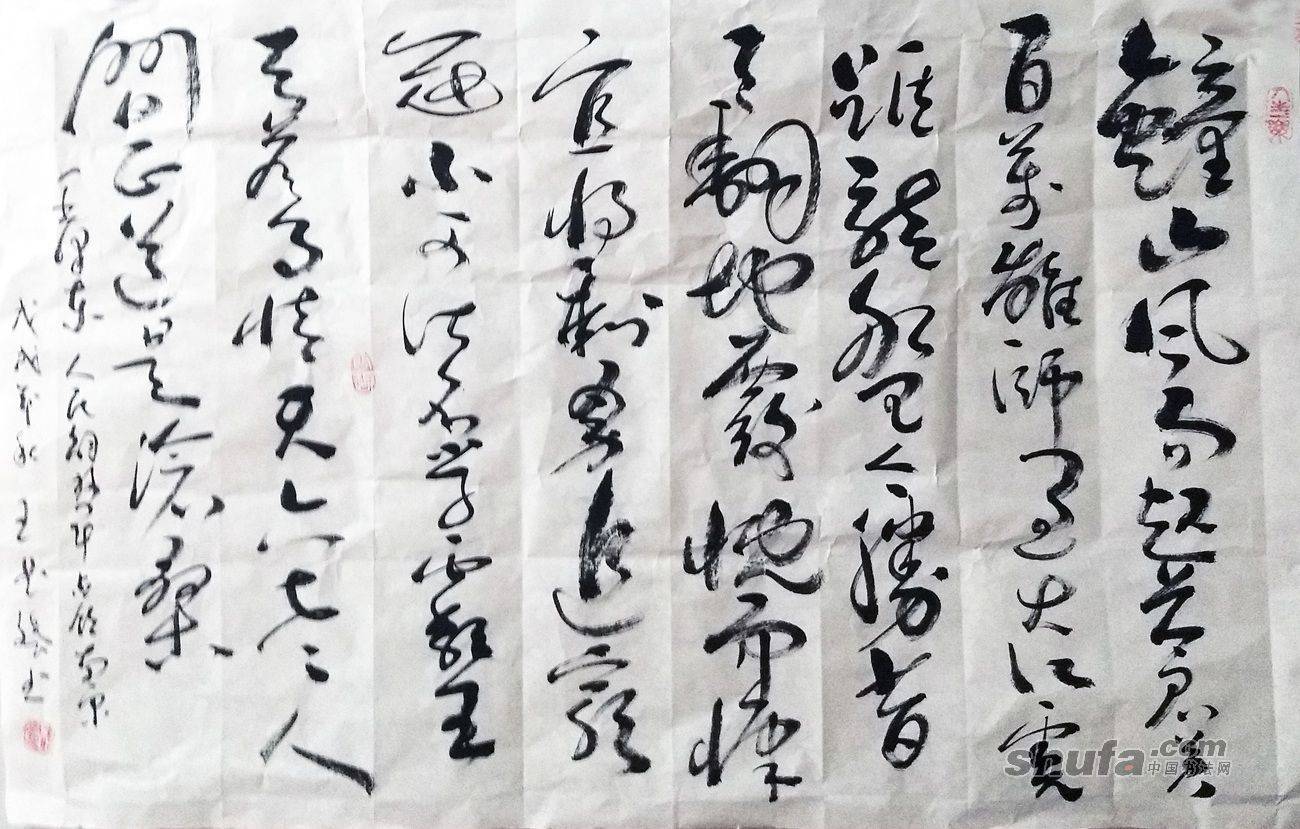 鐘山风雨起苍黄
百萬雄師过大江虎
踞龍盘今勝昔
天翻地覆慨而慷
宜将剩勇追窮
寇不可沽名学霸王
天若有情天亦老人
間正道是滄桑
毛泽东 人民解放軍占领南京
戊戌年秋 王书
shufa.com
中国书法网